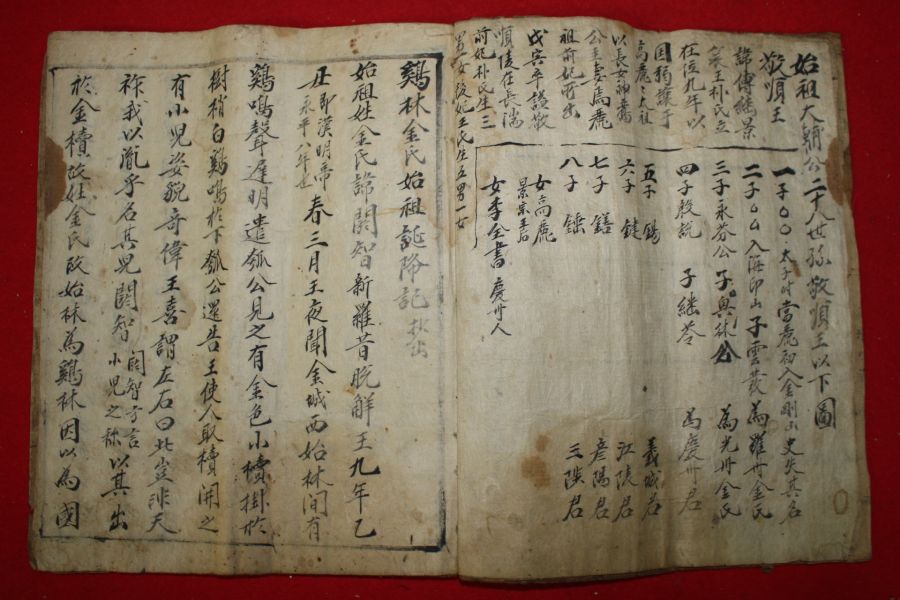 始祖大輔公二十八世孫敬順王以下圖
敬順王
諱傅繼景
哀王朴氏立
在位九年以
國獨讓于
以長女神鸞
公主妻焉麗
祖前妃所出
戊寅卒諡敬
順後在長湍
前妃朴氏生三
男一女後妃王氏生五男一女
一子〇〇 太子時當麗初入金剛山史失其名
二子〇〇入海印山 子雲發 爲羅州金氏
三子永芬公 子興林公 爲光州金氏
四子殷說 子繼苓 爲慶州君
五子錫 義城君
六子鍵 江陵君
七子鐥 彦陽君
八子錘 三陟君
女高麗
景宗王后
女李金書 慶州人
鷄林金氏始祖誕降記
始祖姓金氏諱閼智新羅昔脫解王九年乙
丑卽漢明帝永平八年也春三月王夜聞金城西始林間有
鷄鳴聲遲明遣瓠公見之有金色小櫝掛於
樹梢白鷄鳴於下瓠公還告王使人取櫝開之
有小兒姿貌奇偉王喜謂左右曰此豈非天
祚我以胤乎名其兒閼智閼智方言小兒之称以其出
於金櫝故姓金氏改始林爲鷄林因以爲國